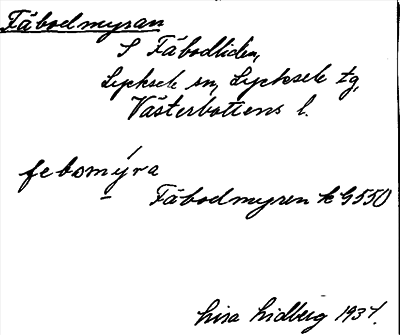 Fäbodmyran
S Fäbodliden,
Lycksele sn, Lycksele tg,
Västerbottens l.
febomýra
Fäbodmyren k G550
Lisa Lidberg 1937.